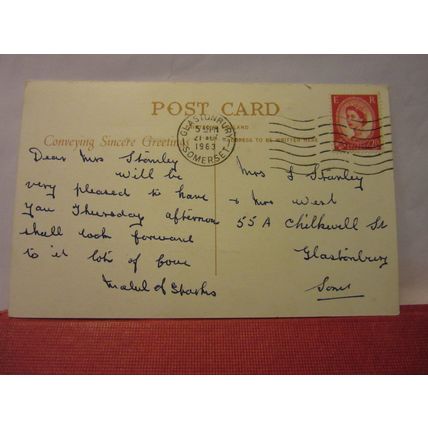 POST CARD
Conveying Sincere Greetings
ADDRESS TO BE WRITTEN HERE
GLASTONBURY
5 PM
1963
SOMERSET
E R
Dear Mrs Stanley
will be
very pleased to have
you Thursday afternoon
shall look forward
to it lots of love
Mabel
Mrs Stanley
+ Mrs West
55 A Chilkwell St
Glastonbury
Som